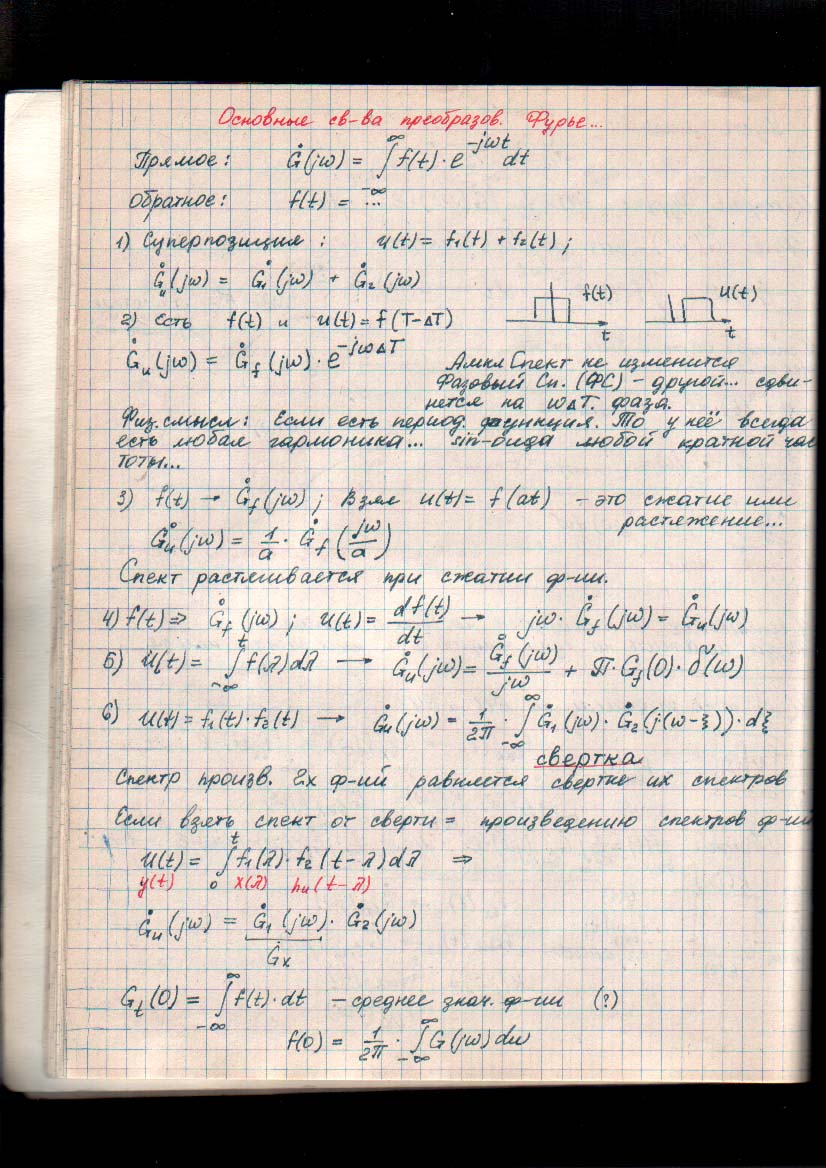 Основные св-ва преобразов. Фурье...
Прямое: Ġ(jω) = ∫_{-∞}^{∞} f(t)·e^{-jωt} dt
Обратное: f(t) = ...
1) Суперпозиция: u(t) = f₁(t) + f₂(t);
Ġu(jω) = Ġ₁(jω) + Ġ₂(jω)
f(t) t u(t) t
2) Есть f(t) и u(t) = f(T-ΔT)
Ġu(jω) = Ġf(jω)·e^{-jωΔT}
Ампл Спект не изменится
Фазовый Сп. (ФС) – другой... сдви-
нется на ωΔT. фаза.
Физ. смысл: Если есть период. функция. То у неё всегда
есть любая гармоника... sin-оида любой кратной час
тоты...
3) f(t) → Ġf(jω); Взял u(t) = f(at) – это сжатие или
растяжение...
Ġu(jω) = 1/a · Ġf(jω/a)
Спект растягивается при сжатии ф-ии.
4) f(t) => Ġf(jω); u(t) = df(t)/dt → jω·Ġf(jω) = Ġu(jω)
5) u(t) = ∫_{-∞}^{t} f(λ)dλ → Ġu(jω) = Ġf(jω)/jω + π·Gf(0)·δ(ω)
6) u(t) = f₁(t)·f₂(t) → Ġu(jω) = 1/2π · ∫_{-∞}^{∞} Ġ₁(jω)·Ġ₂(j(ω-ξ))·dξ
свертка
Спектр произв. 2х ф-ий равняется свертке их спектров
Если взять спект от сверти = произведению спектров ф-ий
u(t) = ∫_{0}^{t} f₁(λ)·f₂(t-λ)dλ ⇒
y(t) x(λ) hu(t-λ)
Ġu(jω) = Ġ₁(jω)·Ġ₂(jω)
Ġx
Gf(0) = ∫_{-∞}^{∞} f(t)·dt – среднее знач. ф-ии (?)
f(0) = 1/2π · ∫_{-∞}^{∞} G(jω)dω